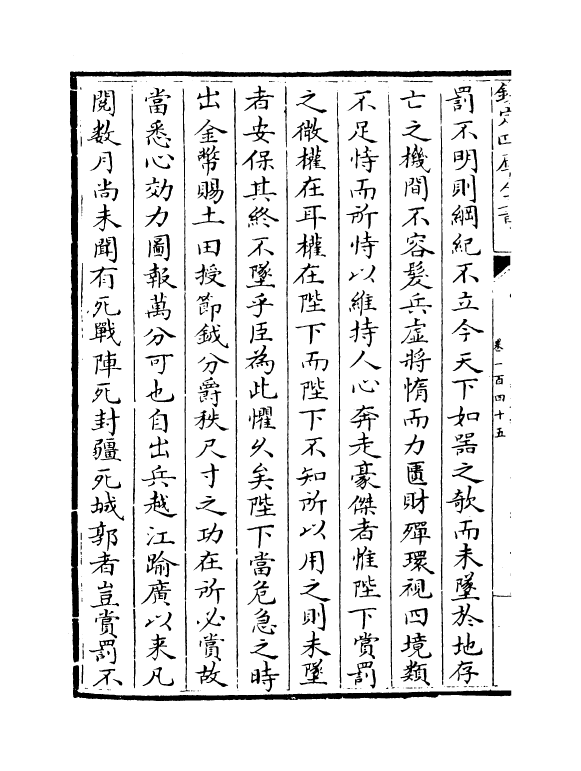 欽定四庫全書
卷一百四十五
罰不明則綱紀不立今天下如器之欹而未墜於地存
亡之機間不容髮兵虛將惰而力匱財殫環視四境類
不足恃而所恃以維持人心奔走豪傑者惟陛下賞罰
之微權在耳權在陛下而陛下不知所以用之則未墜
者安保其終不墜乎臣為此懼久矣陛下當危急之時
出金幣賜土田授節鉞分爵秩尺寸之功在所必賞故
當悉心效力圖報萬分可也自出兵越江踰廣以来凡
閱数月尚未聞有死戰陣死封疆死城郭者豈賞罰不